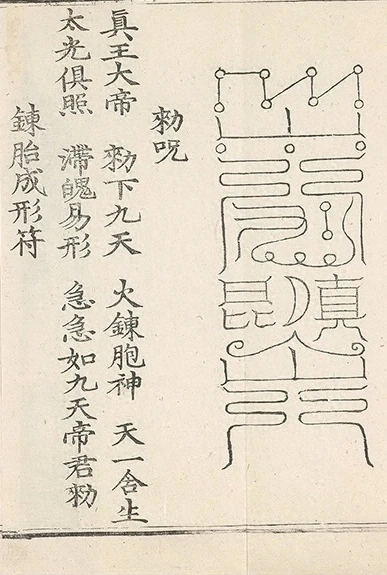 勑呪
眞王大帝　勑下九天　火鍊胞神　天一含生
太光俱照　滯魄易形　急急如九天帝君勑
鍊胎成形符